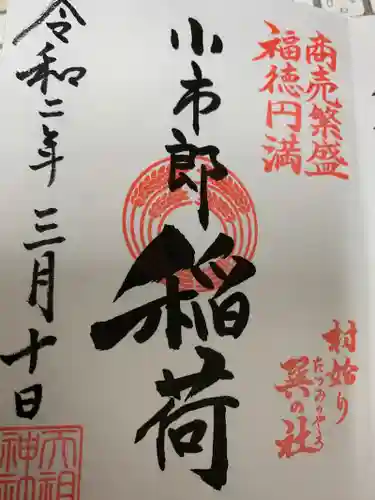 商売繁盛
福徳円満
村始り
たつみのやしろ
巽の社
小市郎稲荷
令和二年三月十日
天祖
神社